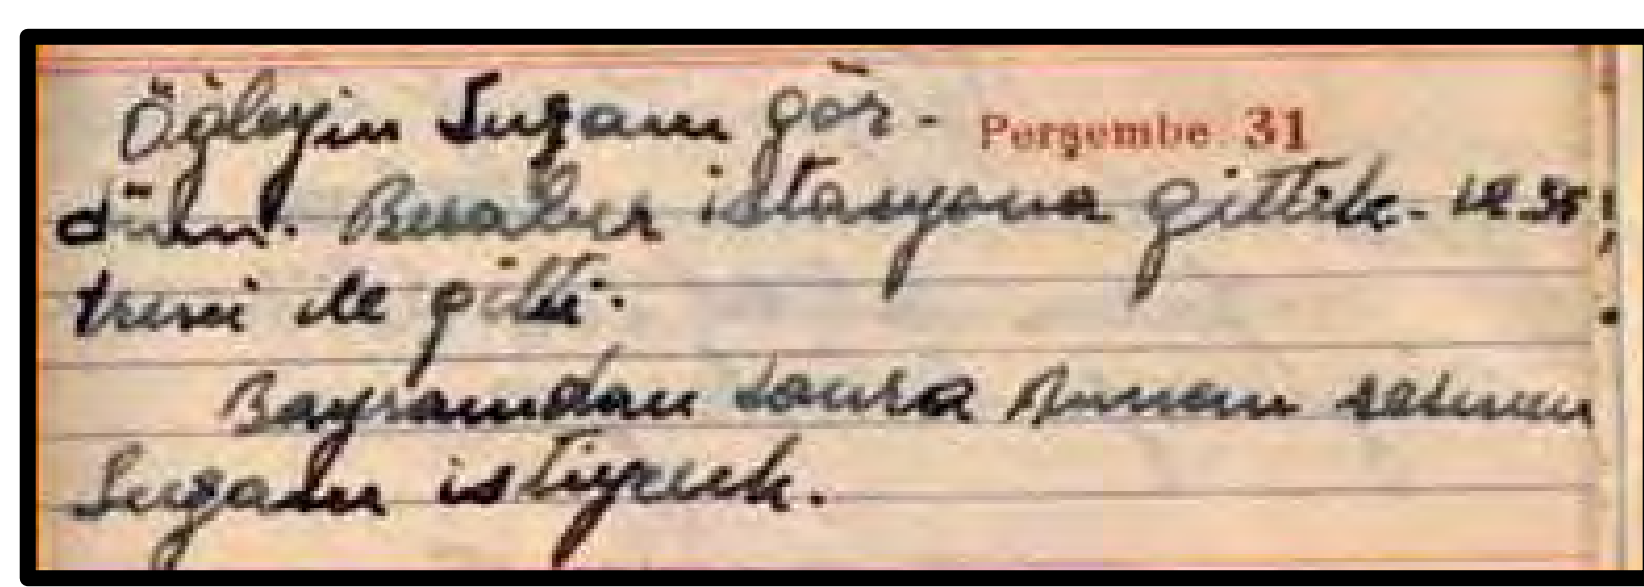 Öğleyin Suzanı gör- Perşembe 31
düm. Beraber istasyona gittik.
treni ile gitti.
Bayramdan sonra Annem resmen
Suzanı istiyecek.